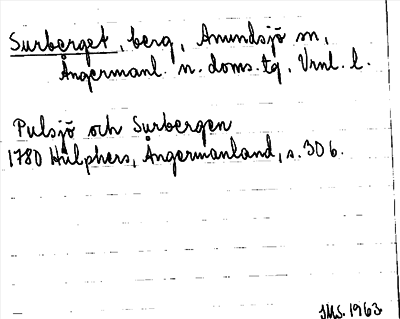 Surberget, berg, Amundsjö sn,
Ångermanl. n. doms. tg, Vrnl. l.
Pulsjö och Surbergen
1780 Hülphers, Ångermanland, s. 306.
JMS. 1963